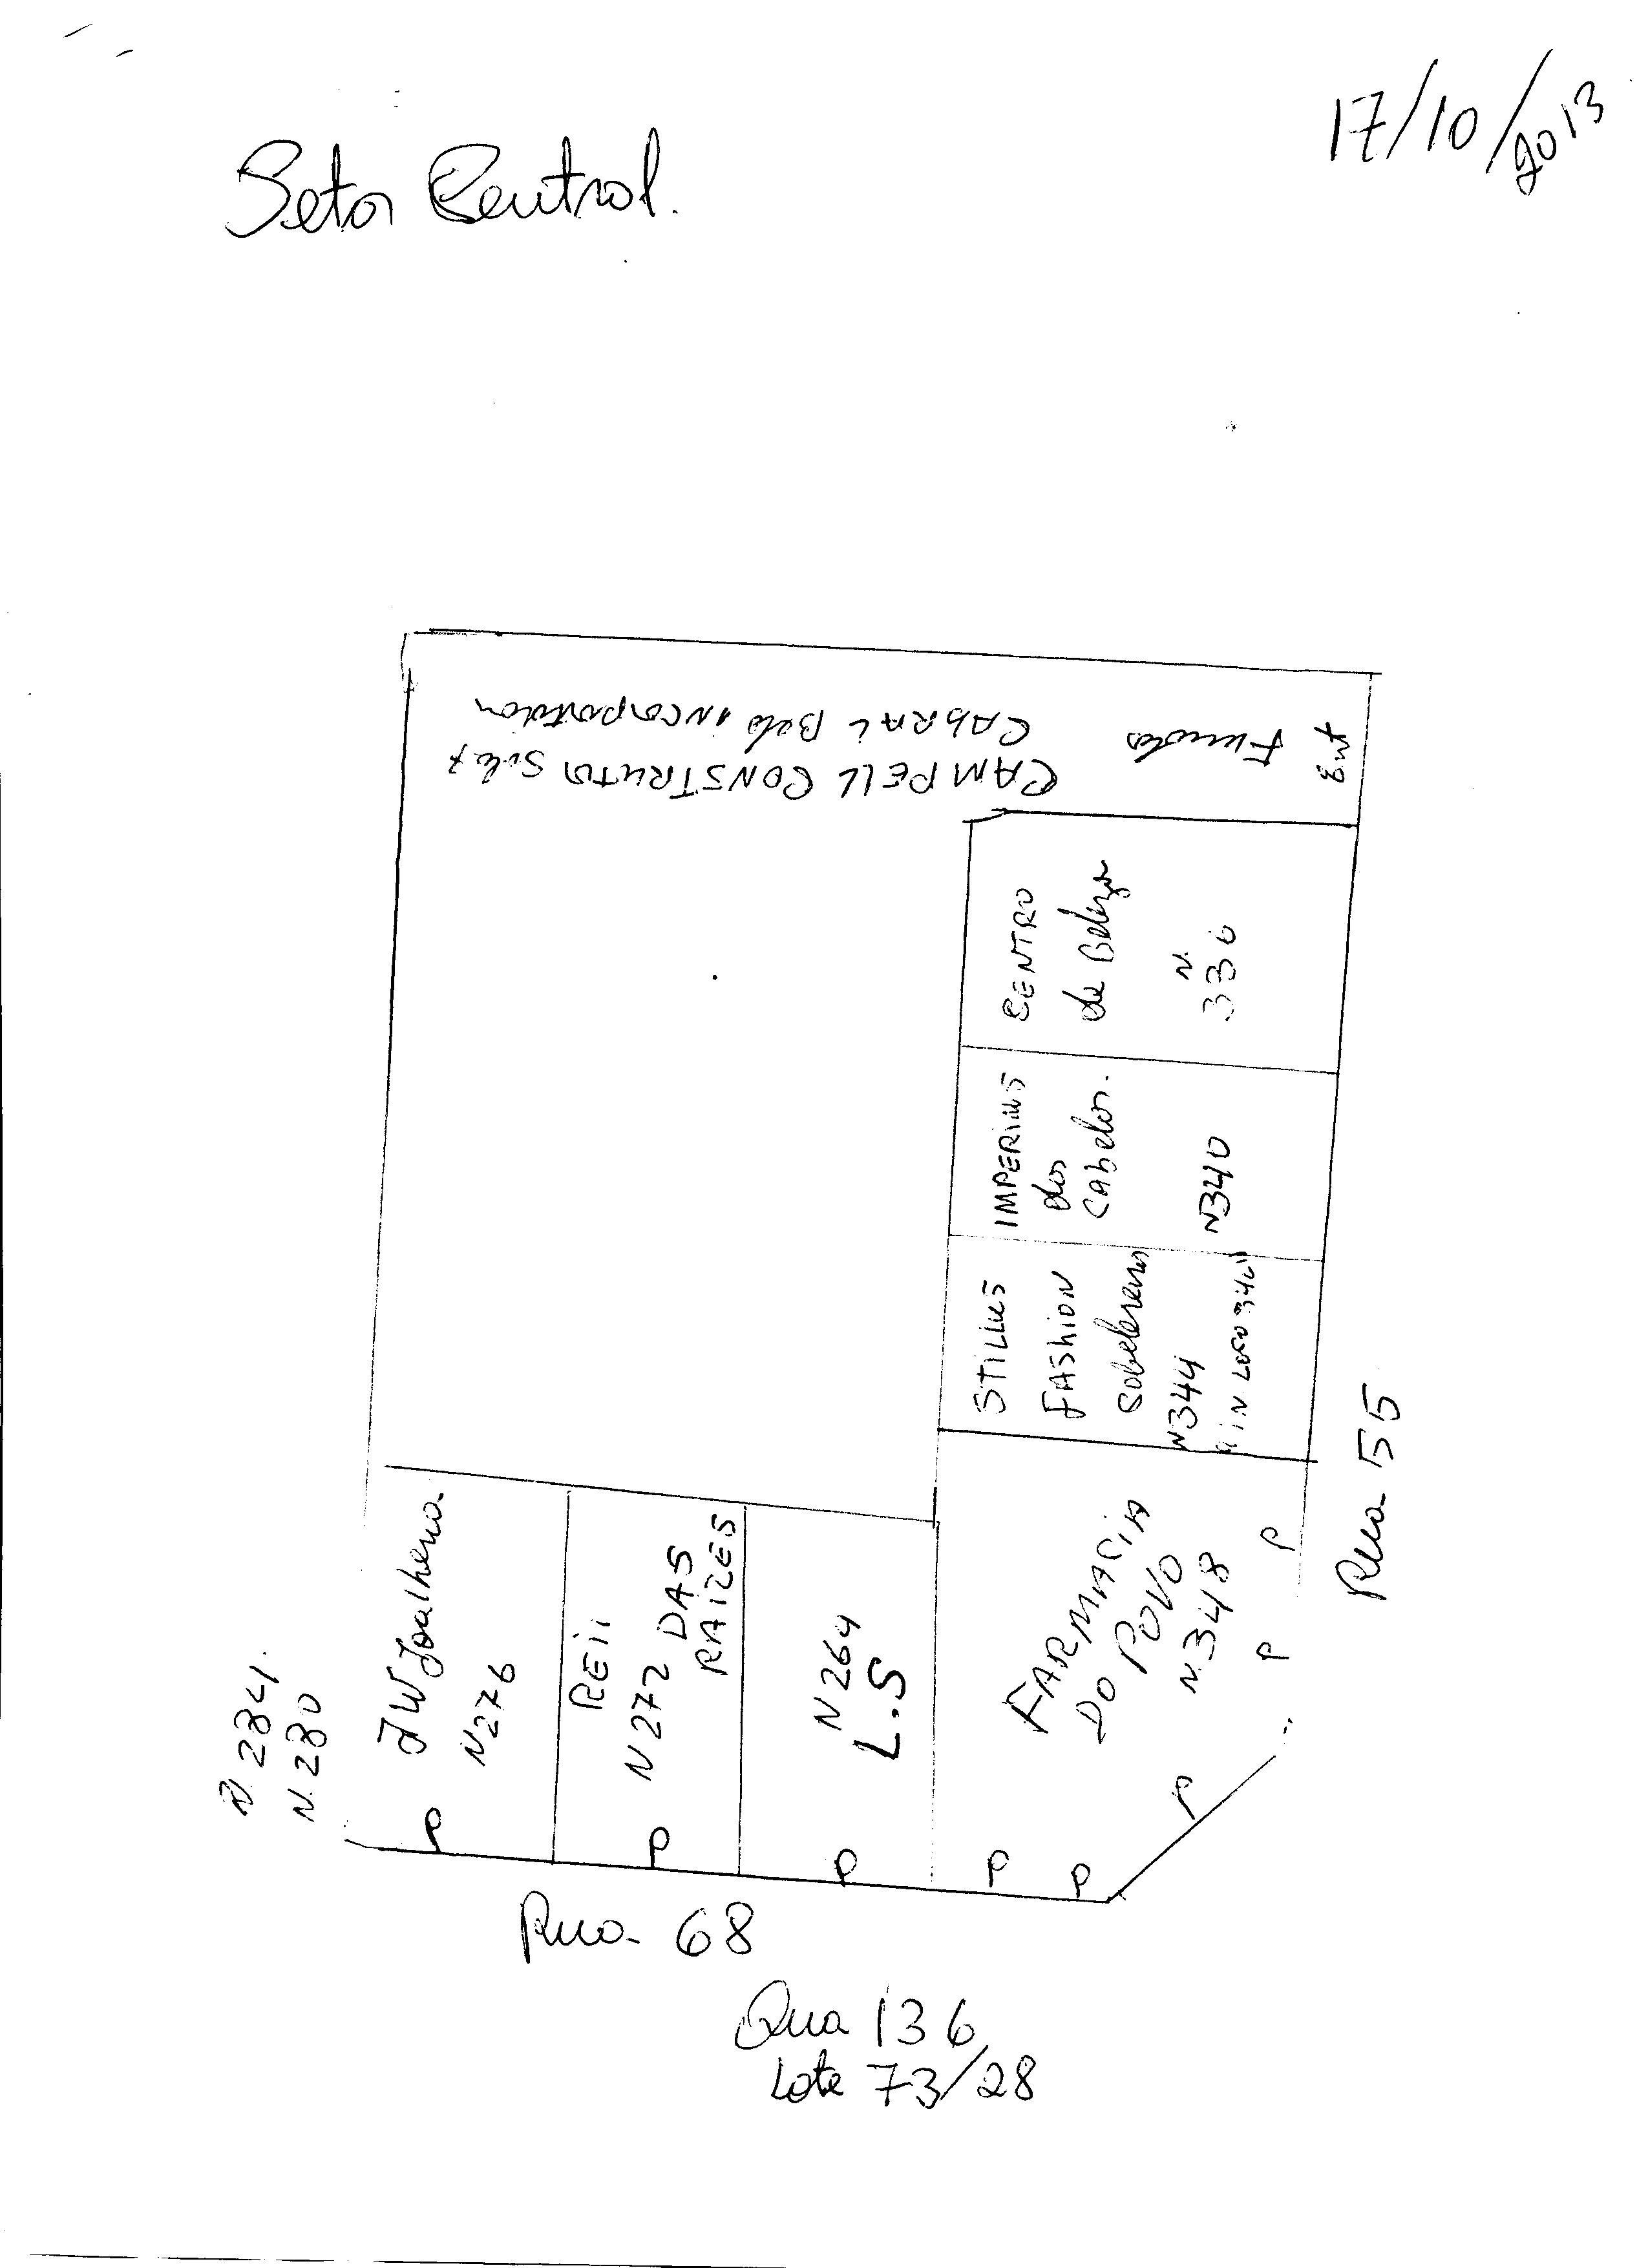 17/10/2013
Setor Central.
CAMPELL CONSTRUTOR
CABRAL Belo incorporador
Fundos
Ent
CENTRO
de Beleza
N.
336
IMPERIUS
dos
CAbelos.
N340
STILLUS
FASHION
N344
IN LOCO 340
Rua 55
FARMACIA
DO POVO
N.348
P
P
P
P
P
N264
L.S
P
REii
N272 DAS
RAIZES
P
JW Joalheria
N276
P
N. 284.
N. 280
Rua 68
Qua 136
Lote 73/28